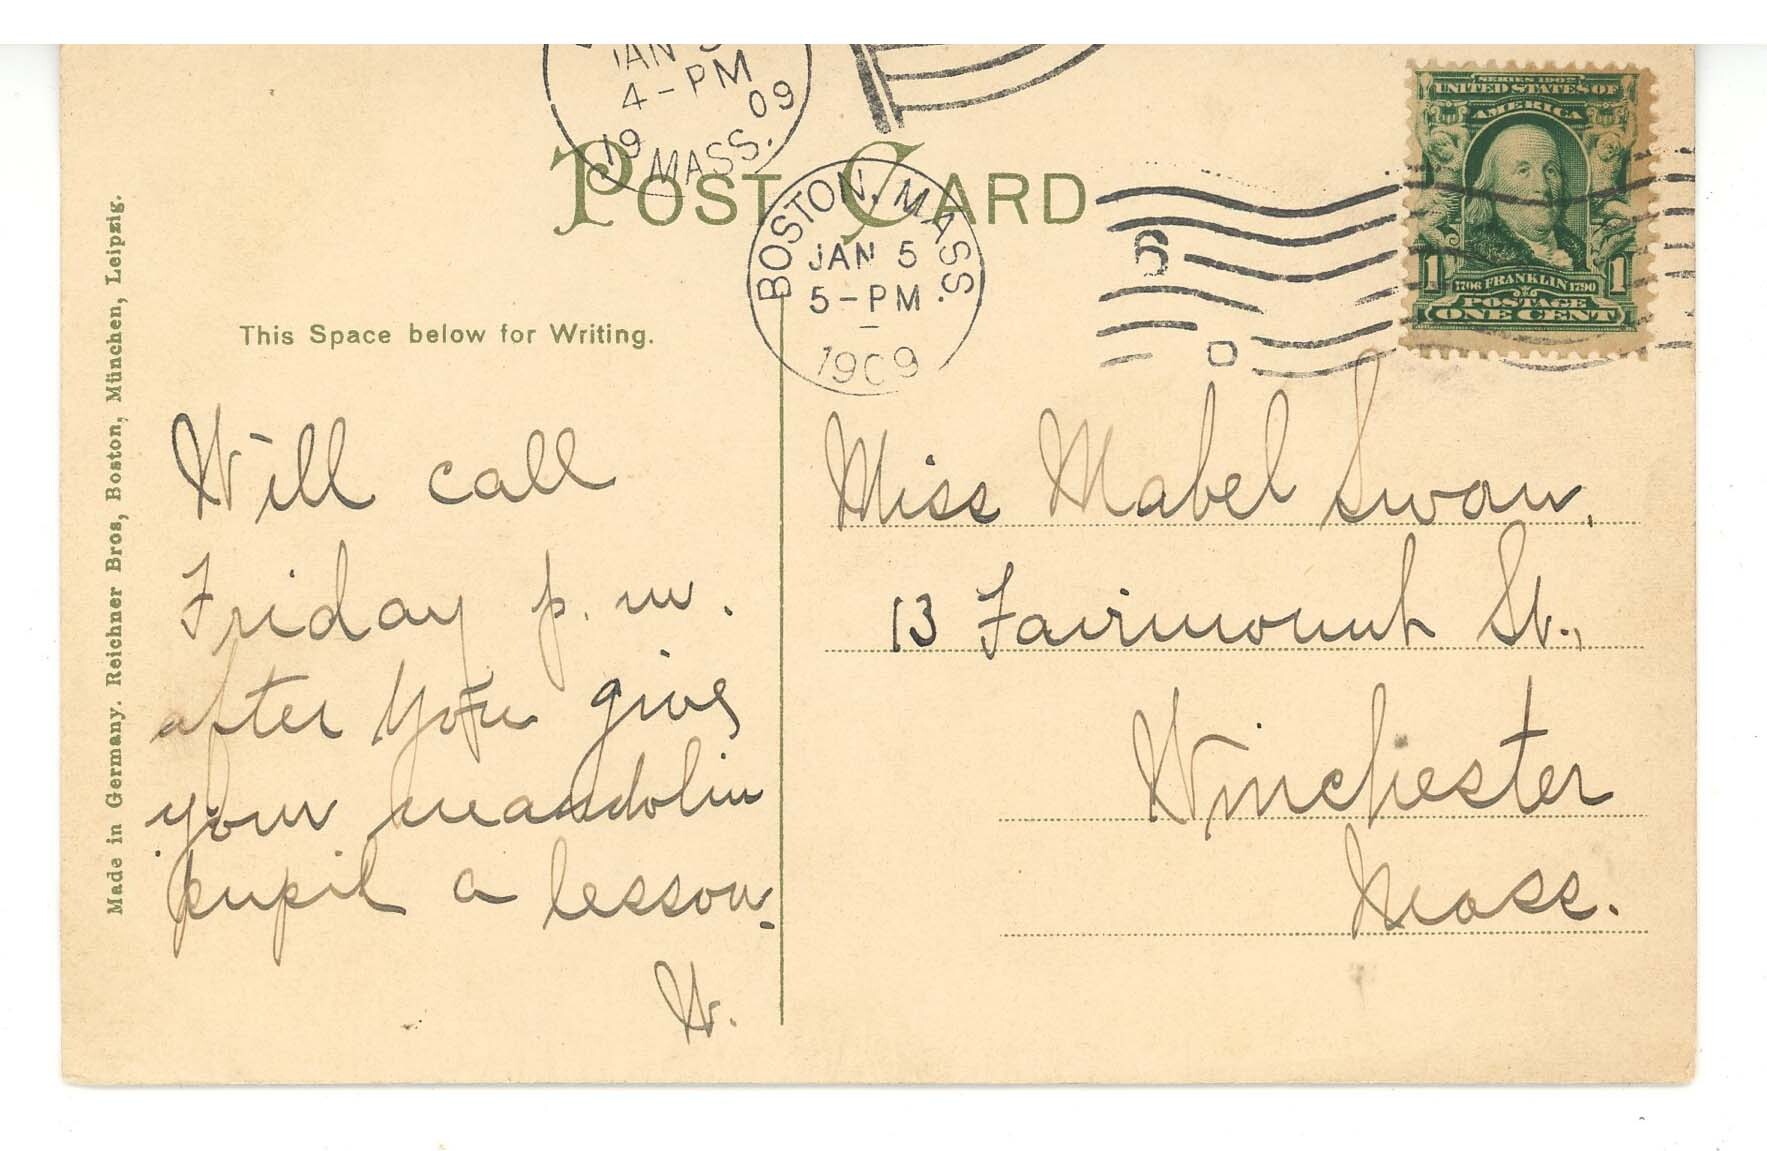 JAN 5
4-PM
19 09
MASS.
POST CARD
BOSTON, MASS.
JAN 5
5-PM
1909
6
SERIES 1902
UNITED STATES OF
AMERICA
1 1706 FRANKLIN 1790 1
POSTAGE
ONE CENT
Made in Germany. Reichner Bros, Boston, München, Leipzig.
This Space below for Writing.
Will call
Friday p.m.
after you give
your mandolin
pupil a lesson.
W.
Miss Mabel Swan,
13 Fairmount St.,
Winchester
Mass.